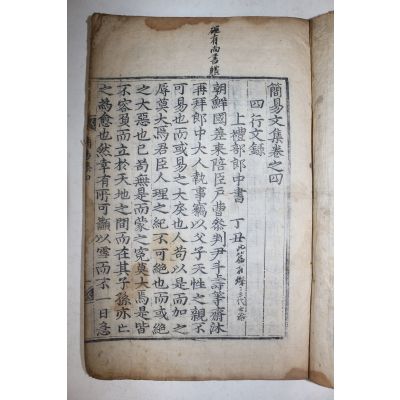 簡易文集卷之四
四行文録
上禮部郎中書 丁丑
朝鮮國差來陪臣戶曹叅判尹斗壽等齋沐
再拜郎中大人執事竊以父子天性之親不
可易也而或易之大戾也人苟以是而加之
辱莫大焉君臣人理之紀不可絶也而或絶
之大惡也已苟無是而蒙之寃莫大焉是皆
不容頂而立於天地之間而在其子孫亦亡
之為愈也然幸有所可籲以雪而不一日急